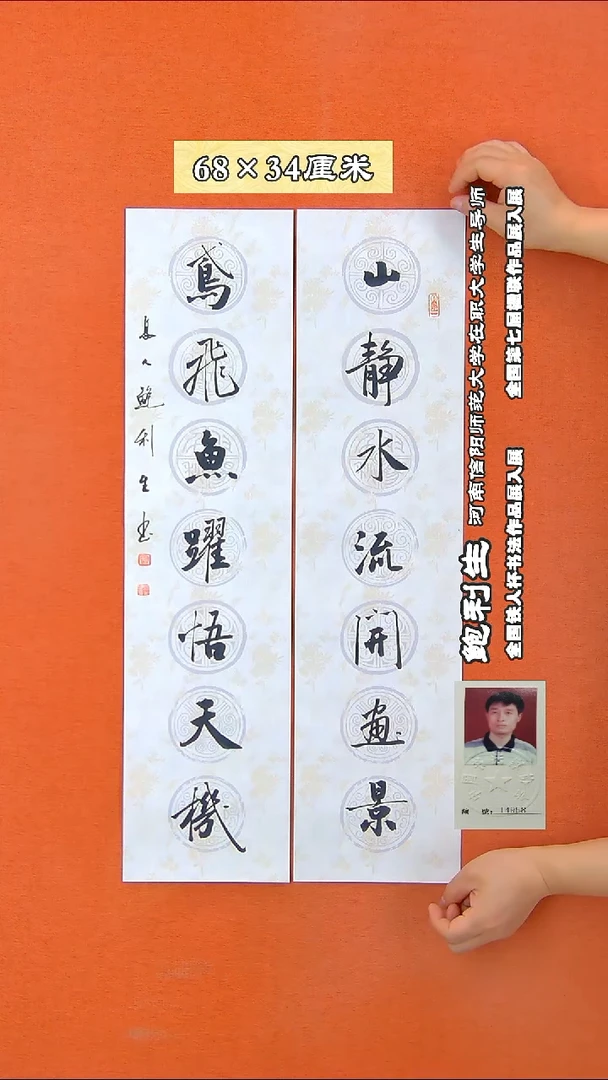 68×34厘米
山靜水流開畫景
鳶飛魚躍悟天機
息人鮑利生书
鲍利生 河南信阳师范大学在职大学生导师
全国铁人杯书法作品展入展 全国第七届楹联作品展入展